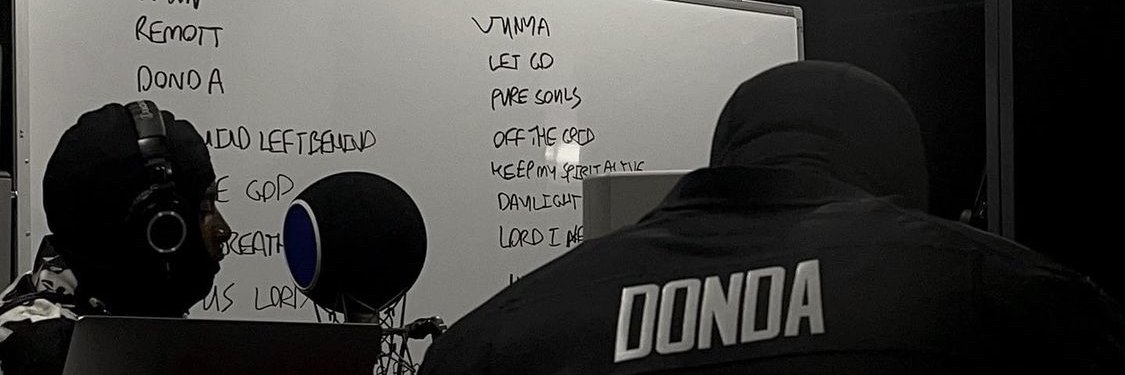 REMOTT
DONDA
LEFT BEHIND
GOD
BREATH
US LORD
JUNYA
LET GO
PURE SOULS
OFF THE GRID
KEEP MY SPIRIT ALIVE
DAYLIGHT
LORD I NE
DONDA